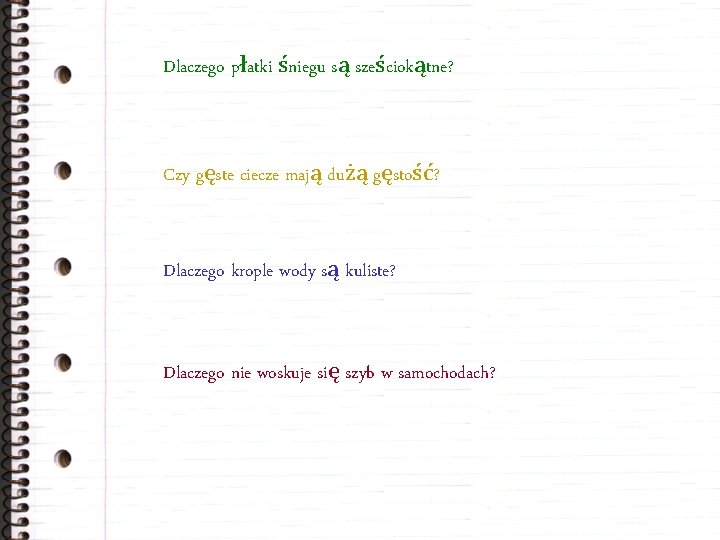 Dlaczego płatki śniegu są sześciokątne?
Czy gęste ciecze mają dużą gęstość?
Dlaczego krople wody są kuliste?
Dlaczego nie woskuje się szyb w samochodach?